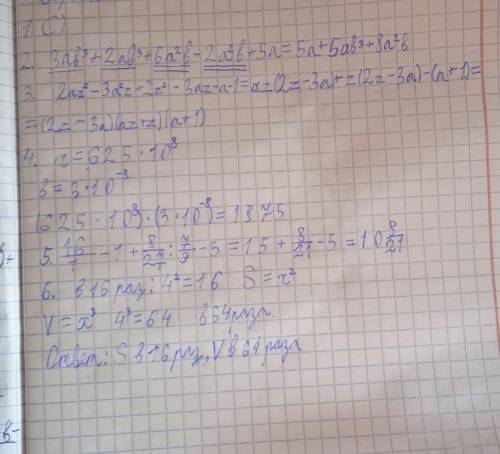 1. C)
2. 3ab³+2ab³+6a²b-2a²b+5a=5a+5ab³+8a²b
3. 2az²-3a²z+2z²-3az-a-1=az(2z-3a)+z(2z-3a)-(a+1)=
=(2z-3a)(az+z)(a+1)
4. a=625·10⁸
b=3·10⁻⁸
(625·10⁸)·(3·10⁻⁸)=1875
5. 16/1-1+8/27:7/9-5=15+8/21-5=10 8/21
6. в 16 раз: 4²=16 S=x²
V=x³ 4³=64 в 64 раза.
Ответ: S в 16 раз, V в 64 раза